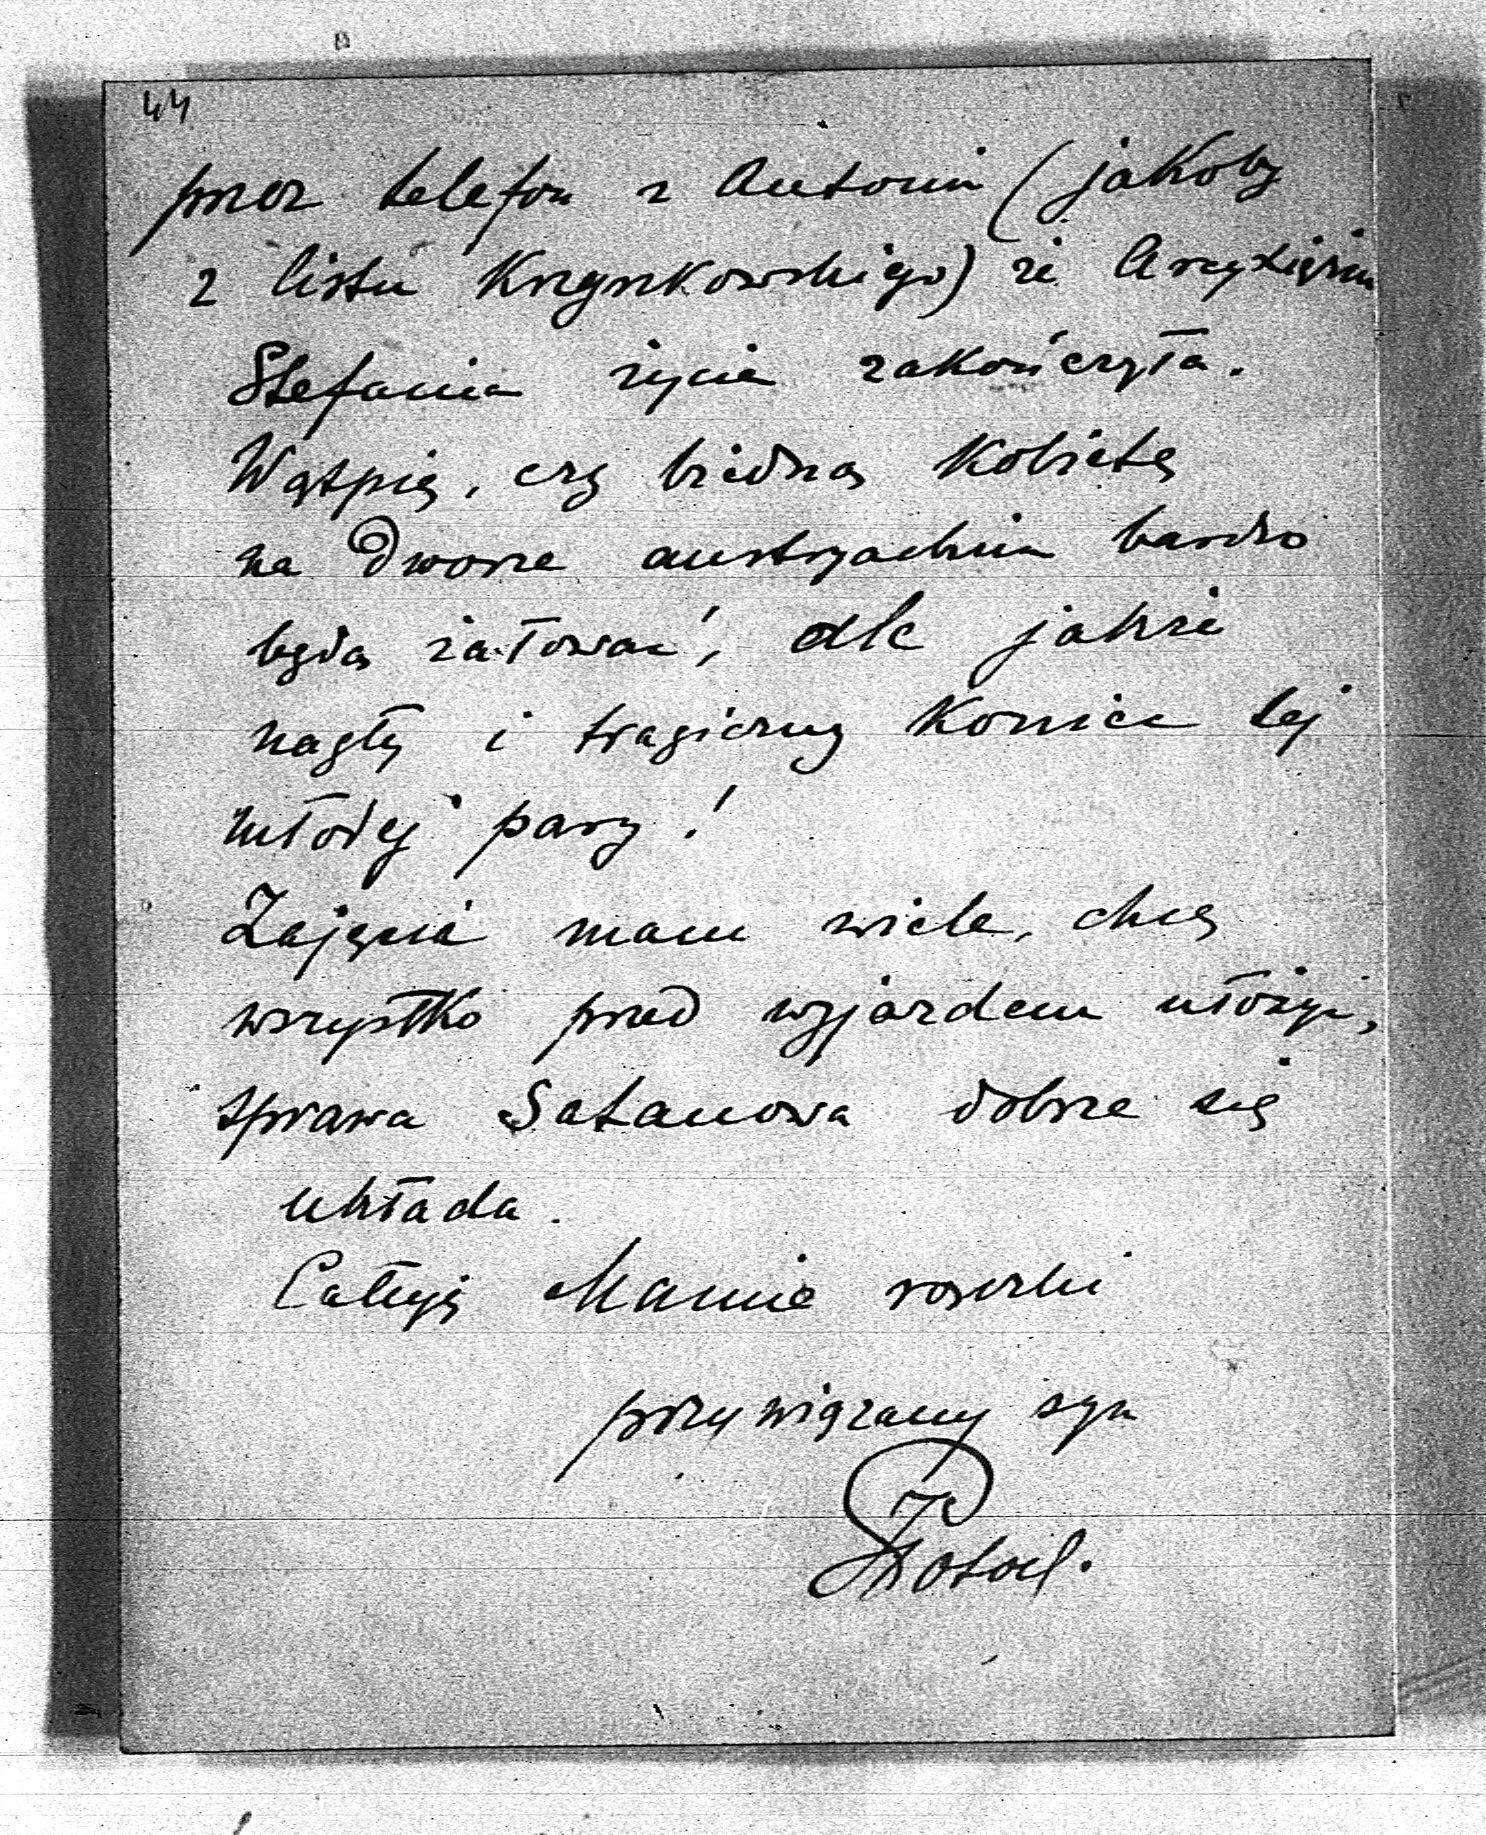 44
przez telefon z Antonin (jakoby
z listu Krzyżkowskiego) że Arcyksiężna
Stefania życie zakończyła.
Wątpię, czy biedną kobietę
na Dworze austryackim bardzo
będą żałować, ale jakże
nagły i tragiczny koniec tej
młodej pary!
Zajęcia mam wiele, chcę
wszystko przed wyjazdem ułożyć,
sprawa Satanowa dobrze się
układa.
Całuję Mamie rączki
przywiązany syn